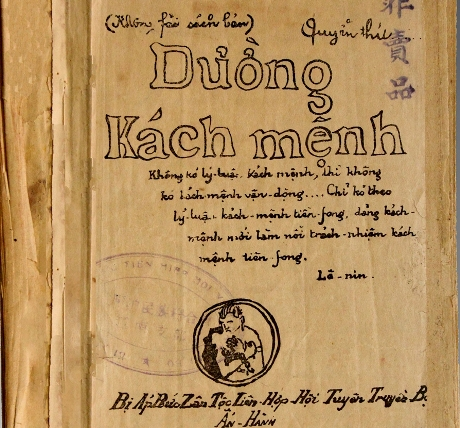 (Không fải sách bán)
Quyển thứ
非賣品
Đường
Kách mệnh
Không kó lý-luận kách mệnh, thì không
kó kách mệnh vận-động.... Chỉ kó theo
lý-luận kách-mệnh tiên-fong, đảng kách-
mệnh mới làm nổi trách-nhiệm kách
mệnh tiên-fong.
Lê-nin.
Bị Áp Bức Zân Tộc Liên-Hợp-Hội Tuyên Truyền Bộ
Ấn-Hành